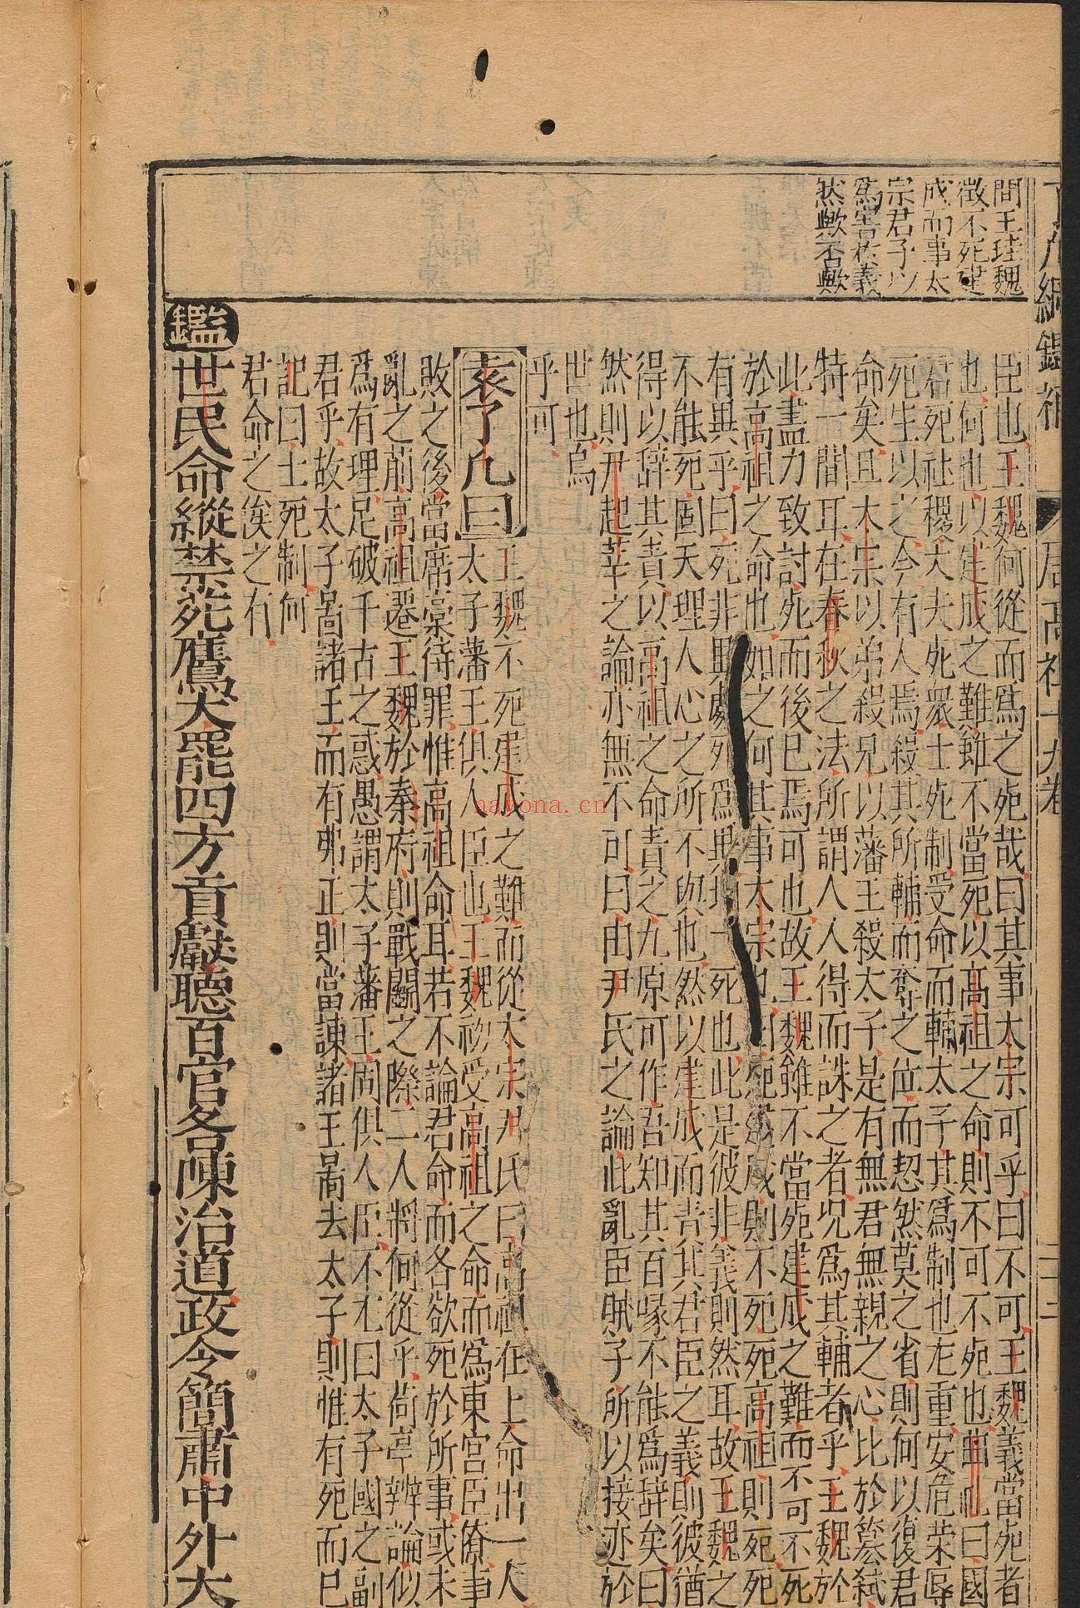 間王珪魏
徵不死建
成而事太
宗君子以
爲害於義
然歟否歟
臣也王魏何從而爲之死哉曰其事太宗可乎曰不可王魏義當死者
也何也以建成之難雖不當死以高祖之命則不可不死也曲禮曰國
君死社稷大夫死衆士死制受命而輔太子其爲制也在重安危榮辱
死生以之今有人焉殺其所輔而奪之位而恝然莫之省則何以復君
命矣且太宗以弟殺兄以藩王殺太子是有無君無親之心比於篡弑
特一間耳在春秋之法所謂人人得而誅之者况爲其輔者乎王魏於
此盡力致討死而後已焉可也故王魏雖不當死建成之難而不可不死
於高祖之命也如之何其事太宗也死建成則不死死高祖則死死
有異乎曰死非異處死爲異均一死也此是彼非義則然耳故王魏之
不能死固天理人心之所不與也然以建成而責其君臣之義則彼猶
得以辞其責以高祖之命責之九原可作吾知其百喙不能爲辞矣曰
然則尹起莘之論亦無不可曰由尹氏之論此亂臣賊子所以接迹於
世也烏
乎可
袁了凡曰
王魏不死建成之難而從太宗尹氏曰高祖在上命出一人
太子藩王俱人臣也王魏初受高祖之命而爲東宮臣僚事
敗之後當席藁待罪惟高祖命耳若不論君命而各欲死於所事或未
亂之前高祖遷王魏於秦府則戰鬭之際二人將何從乎荀亭辨論似
爲有理足破千古之惑愚謂太子藩王固俱人臣不不曰太子國之副
君乎故太子當諸王而有弗正則當諫諸王當去太子則惟有死而已
記曰士死制何
君命之俟之有
鑑
世民命縱禁苑鷹犬罷四方貢獻聽百官各陳治道政令簡肅中外大